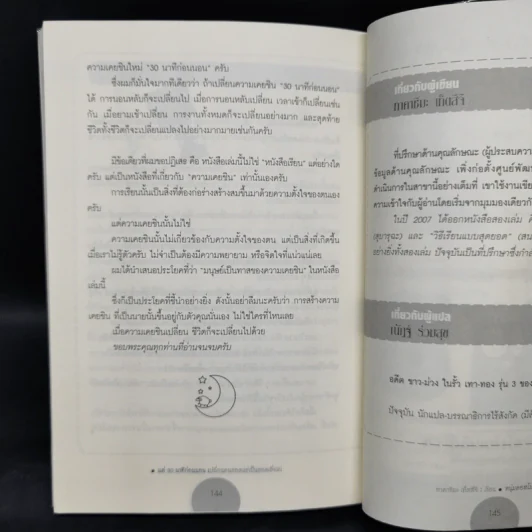 ความเคยชินใหม่ "30 นาทีก่อนนอน" ครับ
ซึ่งผมก็มั่นใจมากทีเดียวว่า ถ้าเปลี่ยนความเคยชิน "30 นาทีก่อนนอน"
ได้ การนอนหลับก็จะเปลี่ยนไป เมื่อการนอนหลับเปลี่ยน เวลาเช้าก็เปลี่ยนเช่น
กัน เมื่อยามเช้าเปลี่ยน การงานทั้งหมดก็จะเปลี่ยนอย่างมาก และสุดท้าย
ชีวิตทั้งชีวิตก็จะเปลี่ยนแปลงไปอย่างมากมายเช่นกันครับ
มีข้อเดียวที่ผมขอปฏิเสธ คือ หนังสือเล่มนี้ไม่ใช่ "หนังสือเรียน" แต่อย่างใด
ครับ แต่เป็นหนังสือที่เกี่ยวกับ "ความเคยชิน" เท่านั้นเองครับ
การเรียนนั้นเป็นสิ่งที่ต้องก่อร่างสร้างสมขึ้นมาด้วยความตั้งใจของตนเอง
ครับ
แต่ความเคยชินนั้นไม่ใช่
ความเคยชินนั้นไม่เกี่ยวข้องกับความตั้งใจของตน แต่เป็นสิ่งที่เกิดขึ้น
เมื่อเราไม่รู้ตัวครับ ไม่จำเป็นต้องมีความพยายาม หรือจิตใจที่แน่วแน่เลย
ผมได้นำเสนอประโยคที่ว่า "มนุษย์เป็นทาสของความเคยชิน" ในหนังสือ
เล่มนี้
ซึ่งก็เป็นประโยคที่ชี้นำอย่างยิ่ง ดังนั้นอย่าลืมนะครับว่า การสร้างความ
เคยชิน ที่เป็นนายนั้นขึ้นอยู่กับตัวคุณนั่นเอง ไม่ใช่ใครที่ไหนเลย
เมื่อความเคยชินเปลี่ยน ชีวิตก็จะเปลี่ยนไปด้วย
ขอบพระคุณทุกท่านที่อ่านจนจบครับ
144
เกี่ยวกับผู้เขียน
ที่ปรึกษาด้านคุณลักษณะ (ผู้ประสบความ
ข้อมูลด้านคุณลักษณะ เพิ่งก่อตั้งศูนย์พัฒ
ดำเนินการในสาขานี้อย่างเต็มที่ เขาใช้งานเขีย
ความเข้าใจกับผู้อ่านโดยเริ่มจากมุมมองเดียวกั
ในปี 2007 ได้ออกหนังสือสองเล่ม คื
และ "วิธีเรียนแบบสุดยอด" (สน
อย่างยิ่งทั้งสองเล่ม ปัจจุบันเป็นที่ปรึกษาซึ่งกำล
เกี่ยวกับผู้แปล
อดีต ขาว-ม่วง ในรั้ว เทา-ทอง รุ่น 3 ของ
ปัจจุบัน นักแปล-บรรณาธิการไร้สังกัด
145